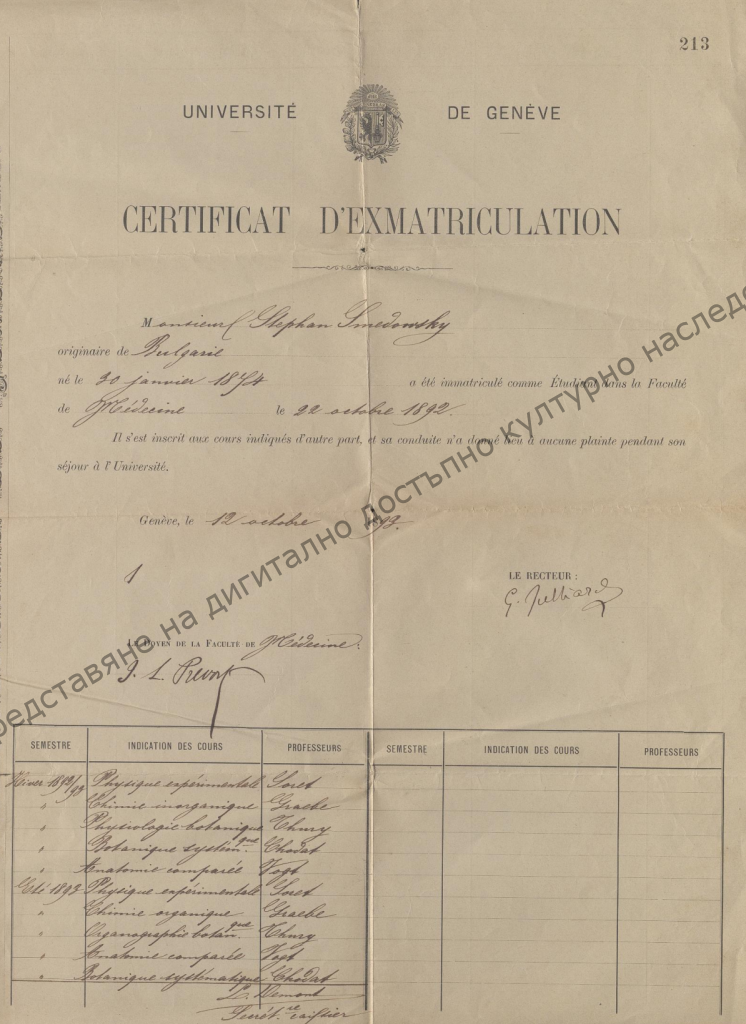 213
UNIVERSITÉ DE GENÈVE
CERTIFICAT D'EXMATRICULATION
Monsieur Stephan Smedowsky
originaire de Bulgarie
né le 30 janvier 1874 a été immatriculé comme Étudiant dans la Faculté
de Médecine le 22 octobre 1892.
Il s'est inscrit aux cours indiqués d'autre part, et sa conduite n'a donné lieu à aucune plainte pendant son
séjour à l'Université.
Genève, le 12 octobre 1893.
1
LE RECTEUR :
G. Julliard
LE DOYEN DE LA FACULTÉ DE Médecine.
J. L. Prevost
SEMESTRE INDICATION DES COURS PROFESSEURS SEMESTRE INDICATION DES COURS PROFESSEURS
Hiver 1892/93 Physique expérimentale Soret
" Chimie inorganique Graebe
" Physiologie botanique Thury
" Botanique systémque Chodat
" Anatomie comparée Vogt
Eté 1893 Physique expérimentale Soret
" Chimie organique Graebe
" Organographie botanque Thury
" Anatomie comparée Vogt
" Botanique systématique Chodat
L. Demont
Secrét.re caissier
редставяне на дигитално достъпно културно наслед